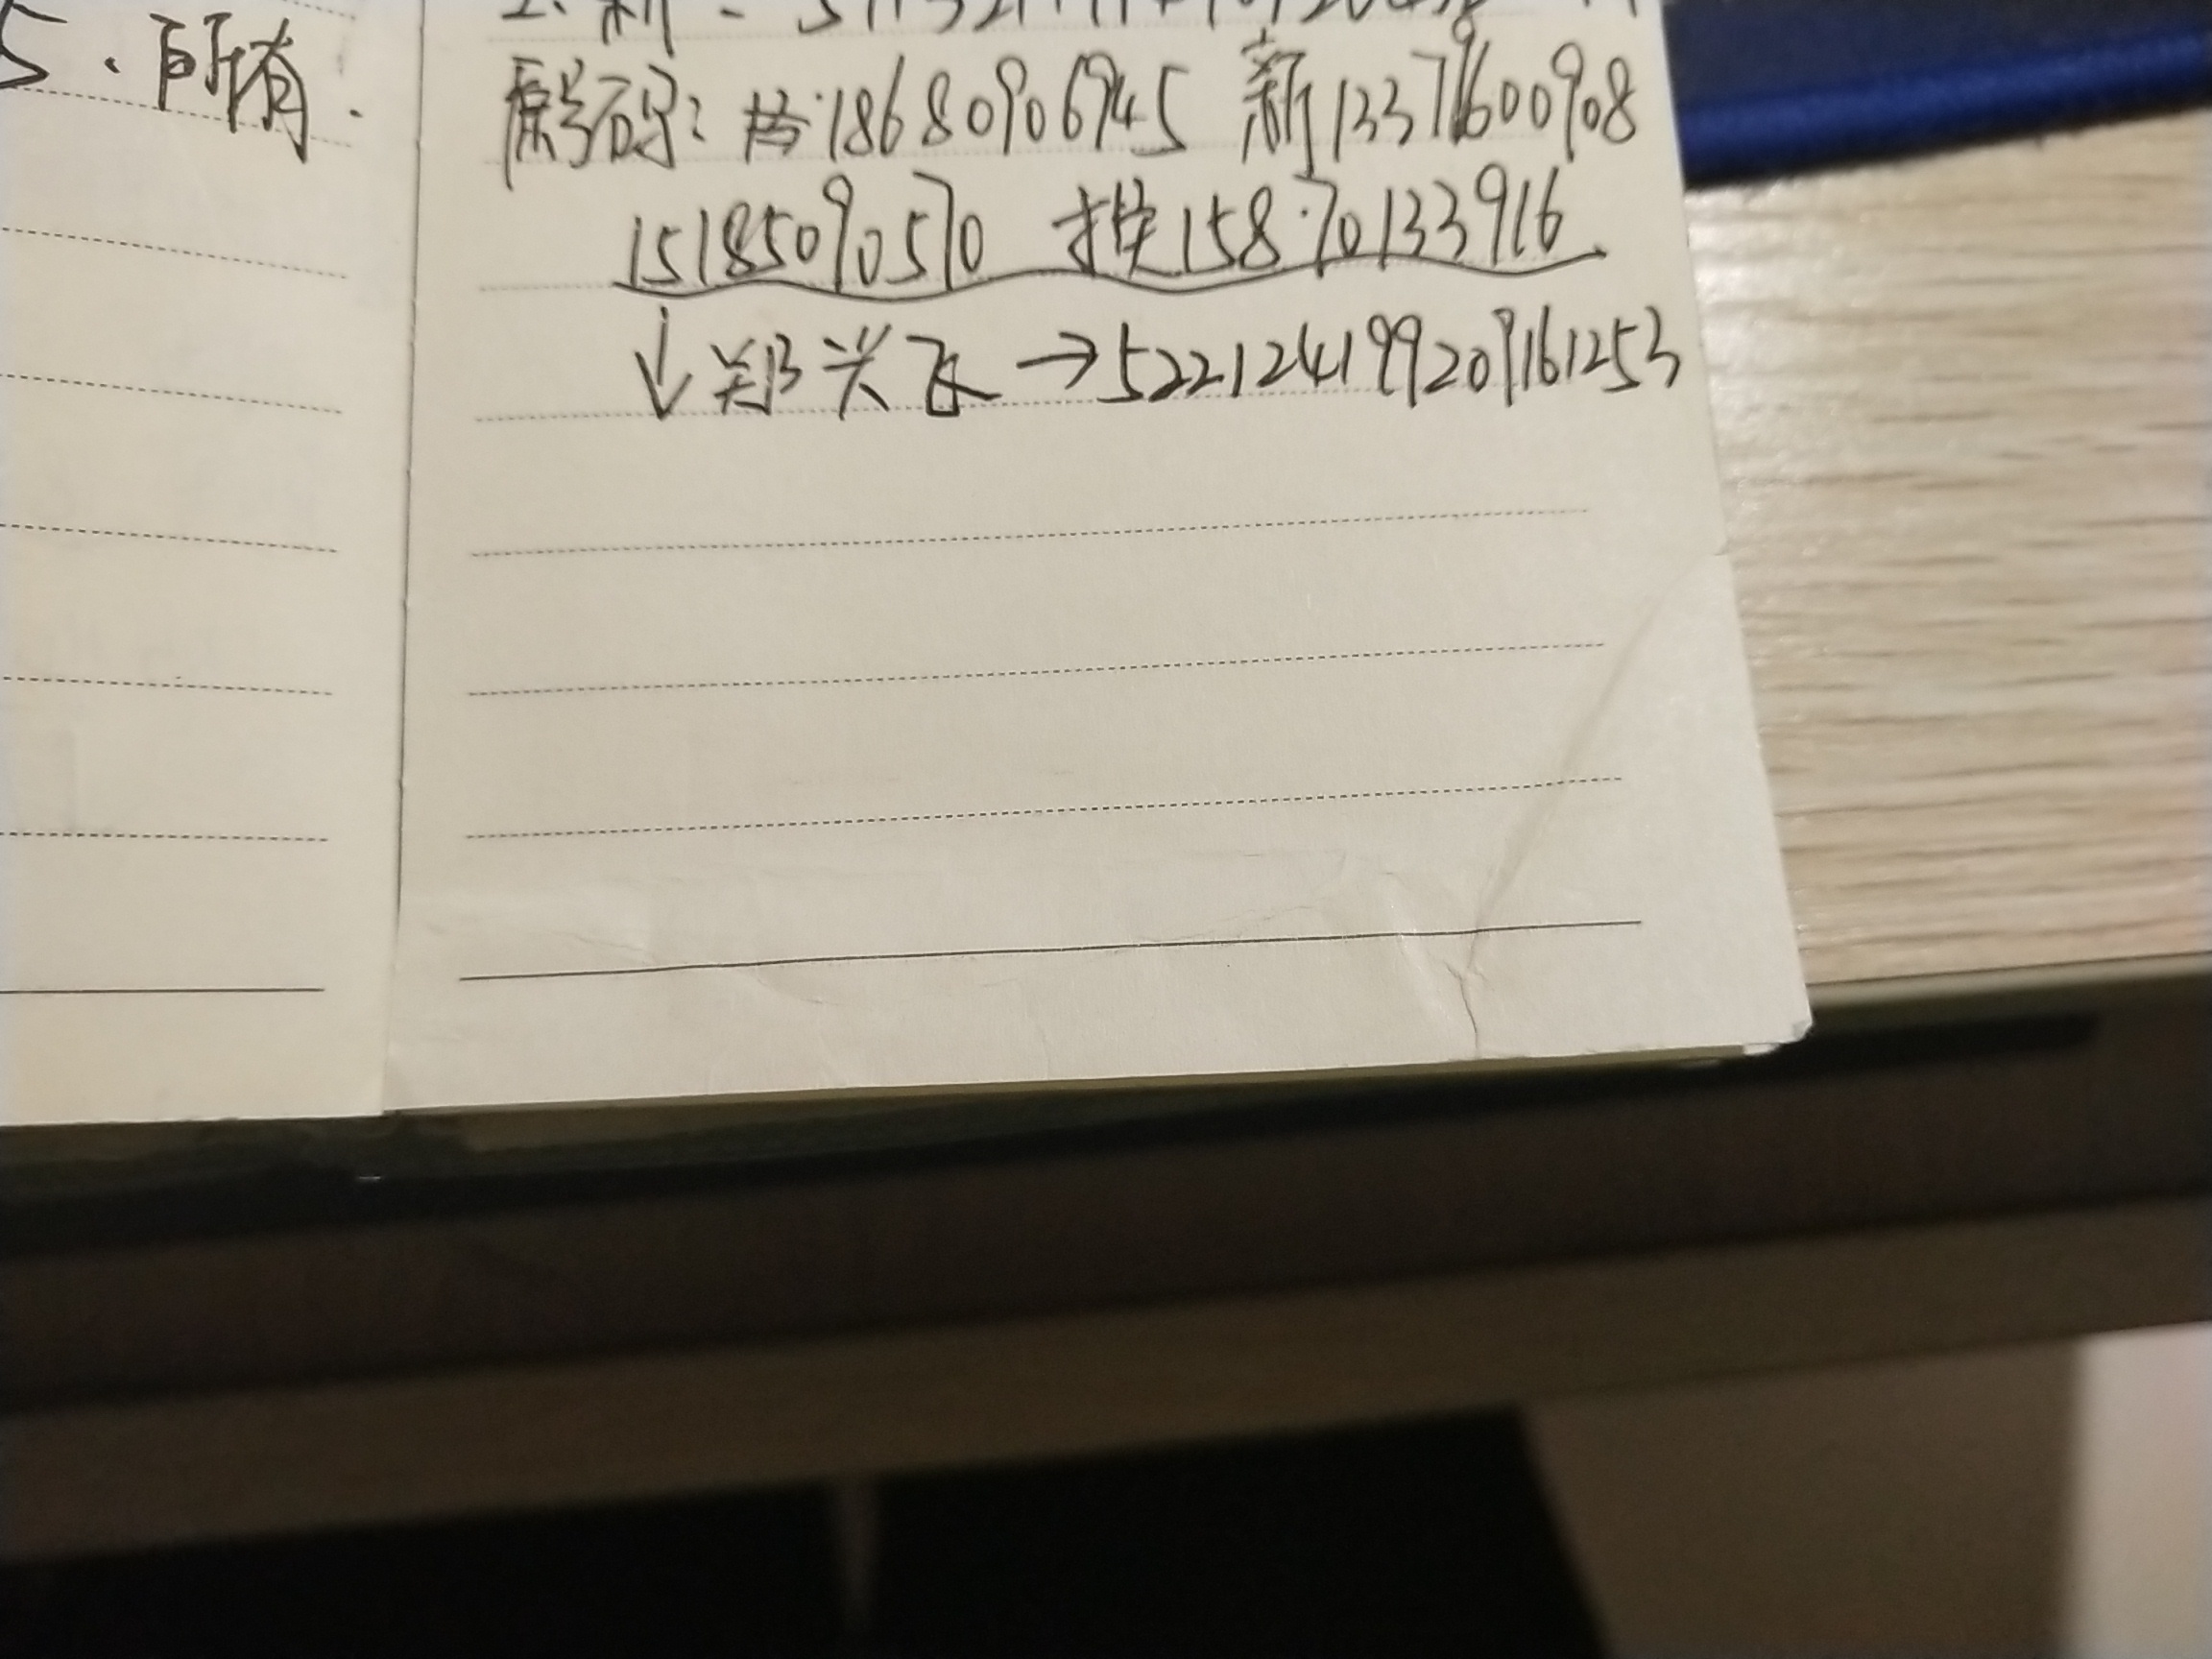 5.所有.
原号码:拨.18680906945 新13378600908
15185090570 换158.70133916.
↓郑兴飞→522124199209161253